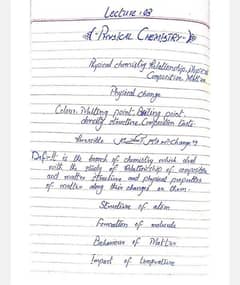 Lecture : 03
PHYSICAL CHEMISTRY
Physical chemistry Relationship. physical
Composition. Matter
Physical change
Colour. Melting point. Boiling point
density. structure. Composition. taste
Def:- It is the branch of chemistry which deal
with the study of Relationship of composition
and matter structure and physical properties
of matter along their changes in them.
Structure of atom
Formation of molecule
Behaviour of Matter
Impact of temperature